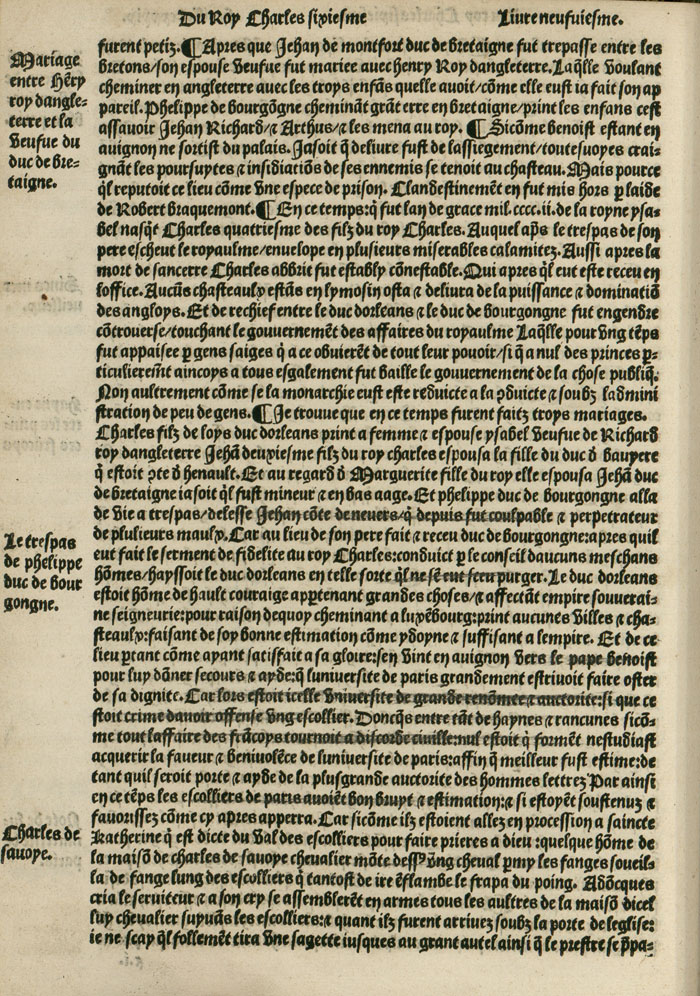 Du Roy Charles sixiesme
Liure neufuiesme.
Mariage
entre Hẽry
roy dangle-
terre et la
veufue du
duc de bre-
taigne.
furent petiz. ¶ Apres que Jehan de montfort duc de bretaigne fut trepasse entre les
bretons/son espouse veufue fut mariee auec henry Roy dangleterre. Laq̃lle voulant
cheminer en angleterre auec les troys enfãs quelle auoit/cõme elle eust ia fait son ap
pareil. Phelippe de bourgõgne cheminãt grãt erre en bretaigne/print les enfans cest
assauoir Jehan Richard/⁊ Arthus/⁊ les mena au roy. ¶ Sicõme benoist estant en
auignon ne sortist du palais. Jasoit q̃ deliure fust de lassiegement/toutesuoyes crai-
gnãt les poursuytes ⁊ insidiatiõs de ses ennemis se tenoit au chasteau. Mais pource
q̃l reputoit ce lieu cõme vne espece de prison. Clandestinemẽt en fut mis hors ꝑ laide
de Robert braquemont. ¶ En ce temps:q̃ fut lan de grace mil.cccc.ii. de la royne ysa-
bel nasq̃t Charles quatriesme des filz du roy Charles. Auquel ap̃s le trespas de son
pere escheut le royaulme/enuelope en plusieurs miserables calamitez. Aussi apres la
mort de sancerre Charles abbrit fut estably cõnestable. Qui apres q̃l eut este receu en
loffice. Aucũs chasteaulx estãs en lymosin osta ⁊ deliura de la puissance ⁊ dominatiõ
des angloys. Et de rechief entre le duc dorleans ⁊ le duc de bourgongne fut engendre
cõtrouerse/touchant le gouuernemẽt des affaires du royaulme Laq̃lle pour vng tẽps
fut appaisee ꝑ gens saiges q̃ a ce obuierẽt de tout leur pouoir/si q̃ a nul des princes ꝑ-
ticulieremẽt aincoys a tous esgalement fut baille le gouuernement de la chose publiq̃.
Non aultrement cõme se la monarchie eust este reduicte a la ꝯduicte ⁊ soubz ladmini
stration de peu de gens. ¶ Je trouue que en ce temps furent faitz troys mariages.
Charles filz de loys duc dorleans print a femme ⁊ espouse ysabel veufue de Richard
roy dangleterre Jehãm deuxiesme filz du roy charles espousa la fille du duc d̃ bauyere
q̃ estoit ꝯte d̃ henault. Et au regard d̃ Marguerite fille du roy elle espousa Jehã duc
de bretaigne iasoit q̃l fust mineur ⁊ en bas aage. Et phelippe duc de bourgongne alla
de vie a trespas/delesse Jehan cõte de neuers/q̃ depuis fut coulpable ⁊ perpetrateur
de plusieurs maulx. Car au lieu de son pere fait ⁊ receu duc de bourgongne:apres quil
eut fait le serment de fidelite au roy Charles:conduict ꝑ le conseil daucuns meschans
hõmes/hayssoit le duc dorleans en telle sorte q̃l ne sẽ eut sceu purger. Le duc dorleans
estoit hõme de hault couraige appertenant grandes choses/⁊ affectãt empire souuerai-
ne seigneurie:pour raison dequoy cheminant a luxẽbourg:print aucunes villes ⁊ cha-
steaulx:faisant de soy bonne estimation cõme ydoyne ⁊ suffisant a lempire. Et de ce
lieu ꝑtant cõme ayant satisfait a sa gloire:sen vint en auignon vers le pape benoist
pour luy dãner secours ⁊ ayde:q̃ luniuersite de paris grandement estriuoit faire oster
de sa dignite. Car lors estoit icelle vniuersite de grande renõmee ⁊ auctorite:si que ce
stoit crime dauoir offense vng escollier. Doncq̃s entre tãt de haynes ⁊ rancunes sicõ-
me tout laffaire des frãcoys tournoit a discorde ciuille:nul estoit q̃ formẽt nestudiast
acquerir la faueur ⁊ beniuolẽce de luniuersite de paris:affin q̃ meilleur fust estime:de
tant quil seroit porte ⁊ ayde de la plusgrande auctorite des hommes lettrez Par ainsi
en ce tẽps les escolliers de paris auoiẽt bon bruyt ⁊ estimation:⁊ si estoyẽt soustenuz ⁊
fauorissez cõme cy apres apperra. Car sicõme ilz estoient allez en procession a saincte
katherine q̃ est dicte du val des escolliers pour faire prieres a dieu:quelque hõme de
la maisõ de charles de sauoye cheualier mõte dess⁹ vng cheual ꝑmy les fanges soueil-
la de fange lung des escolliers q̃ tantost de ire ẽflambe le frapa du poing. Adõcques
cria le seruiteur ⁊ a son cry se assemblerẽt en armes tous les aultres de la maisõ dicel
luy cheualier suyuãs les escolliers:⁊ quant ilz furent arriuez soubz la porte de leglise:
ie ne scay q̃l follemẽt tira vne sagette iusques au grant autel ainsi q̃ le prestre se p̃pa-
Le trespas
de phelippe
duc de bour
gongne.
Charles de
sauoye.